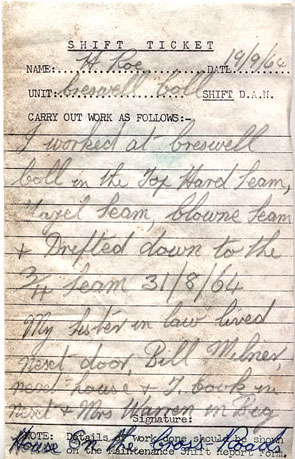 SHIFT TICKET
NAME:...H. Roe...DATE 19/9/64
UNIT:...Creswell Coll SHIFT D.A.N.
CARRY OUT WORK AS FOLLOWS:-
I worked at Creswell
Coll in the Top Hard Seam,
Hazel Seam, Clowne Seam
& Drifted down to the
3/4 Seam 31/8/64
My Sister in law lived
next door, Bill Milner
next house & J book in
next & Mrs Warren in Big
Signature:
House On the Cross Roads
NOTE: Details of work done should be shown
on the Maintenance Shift Report Form.